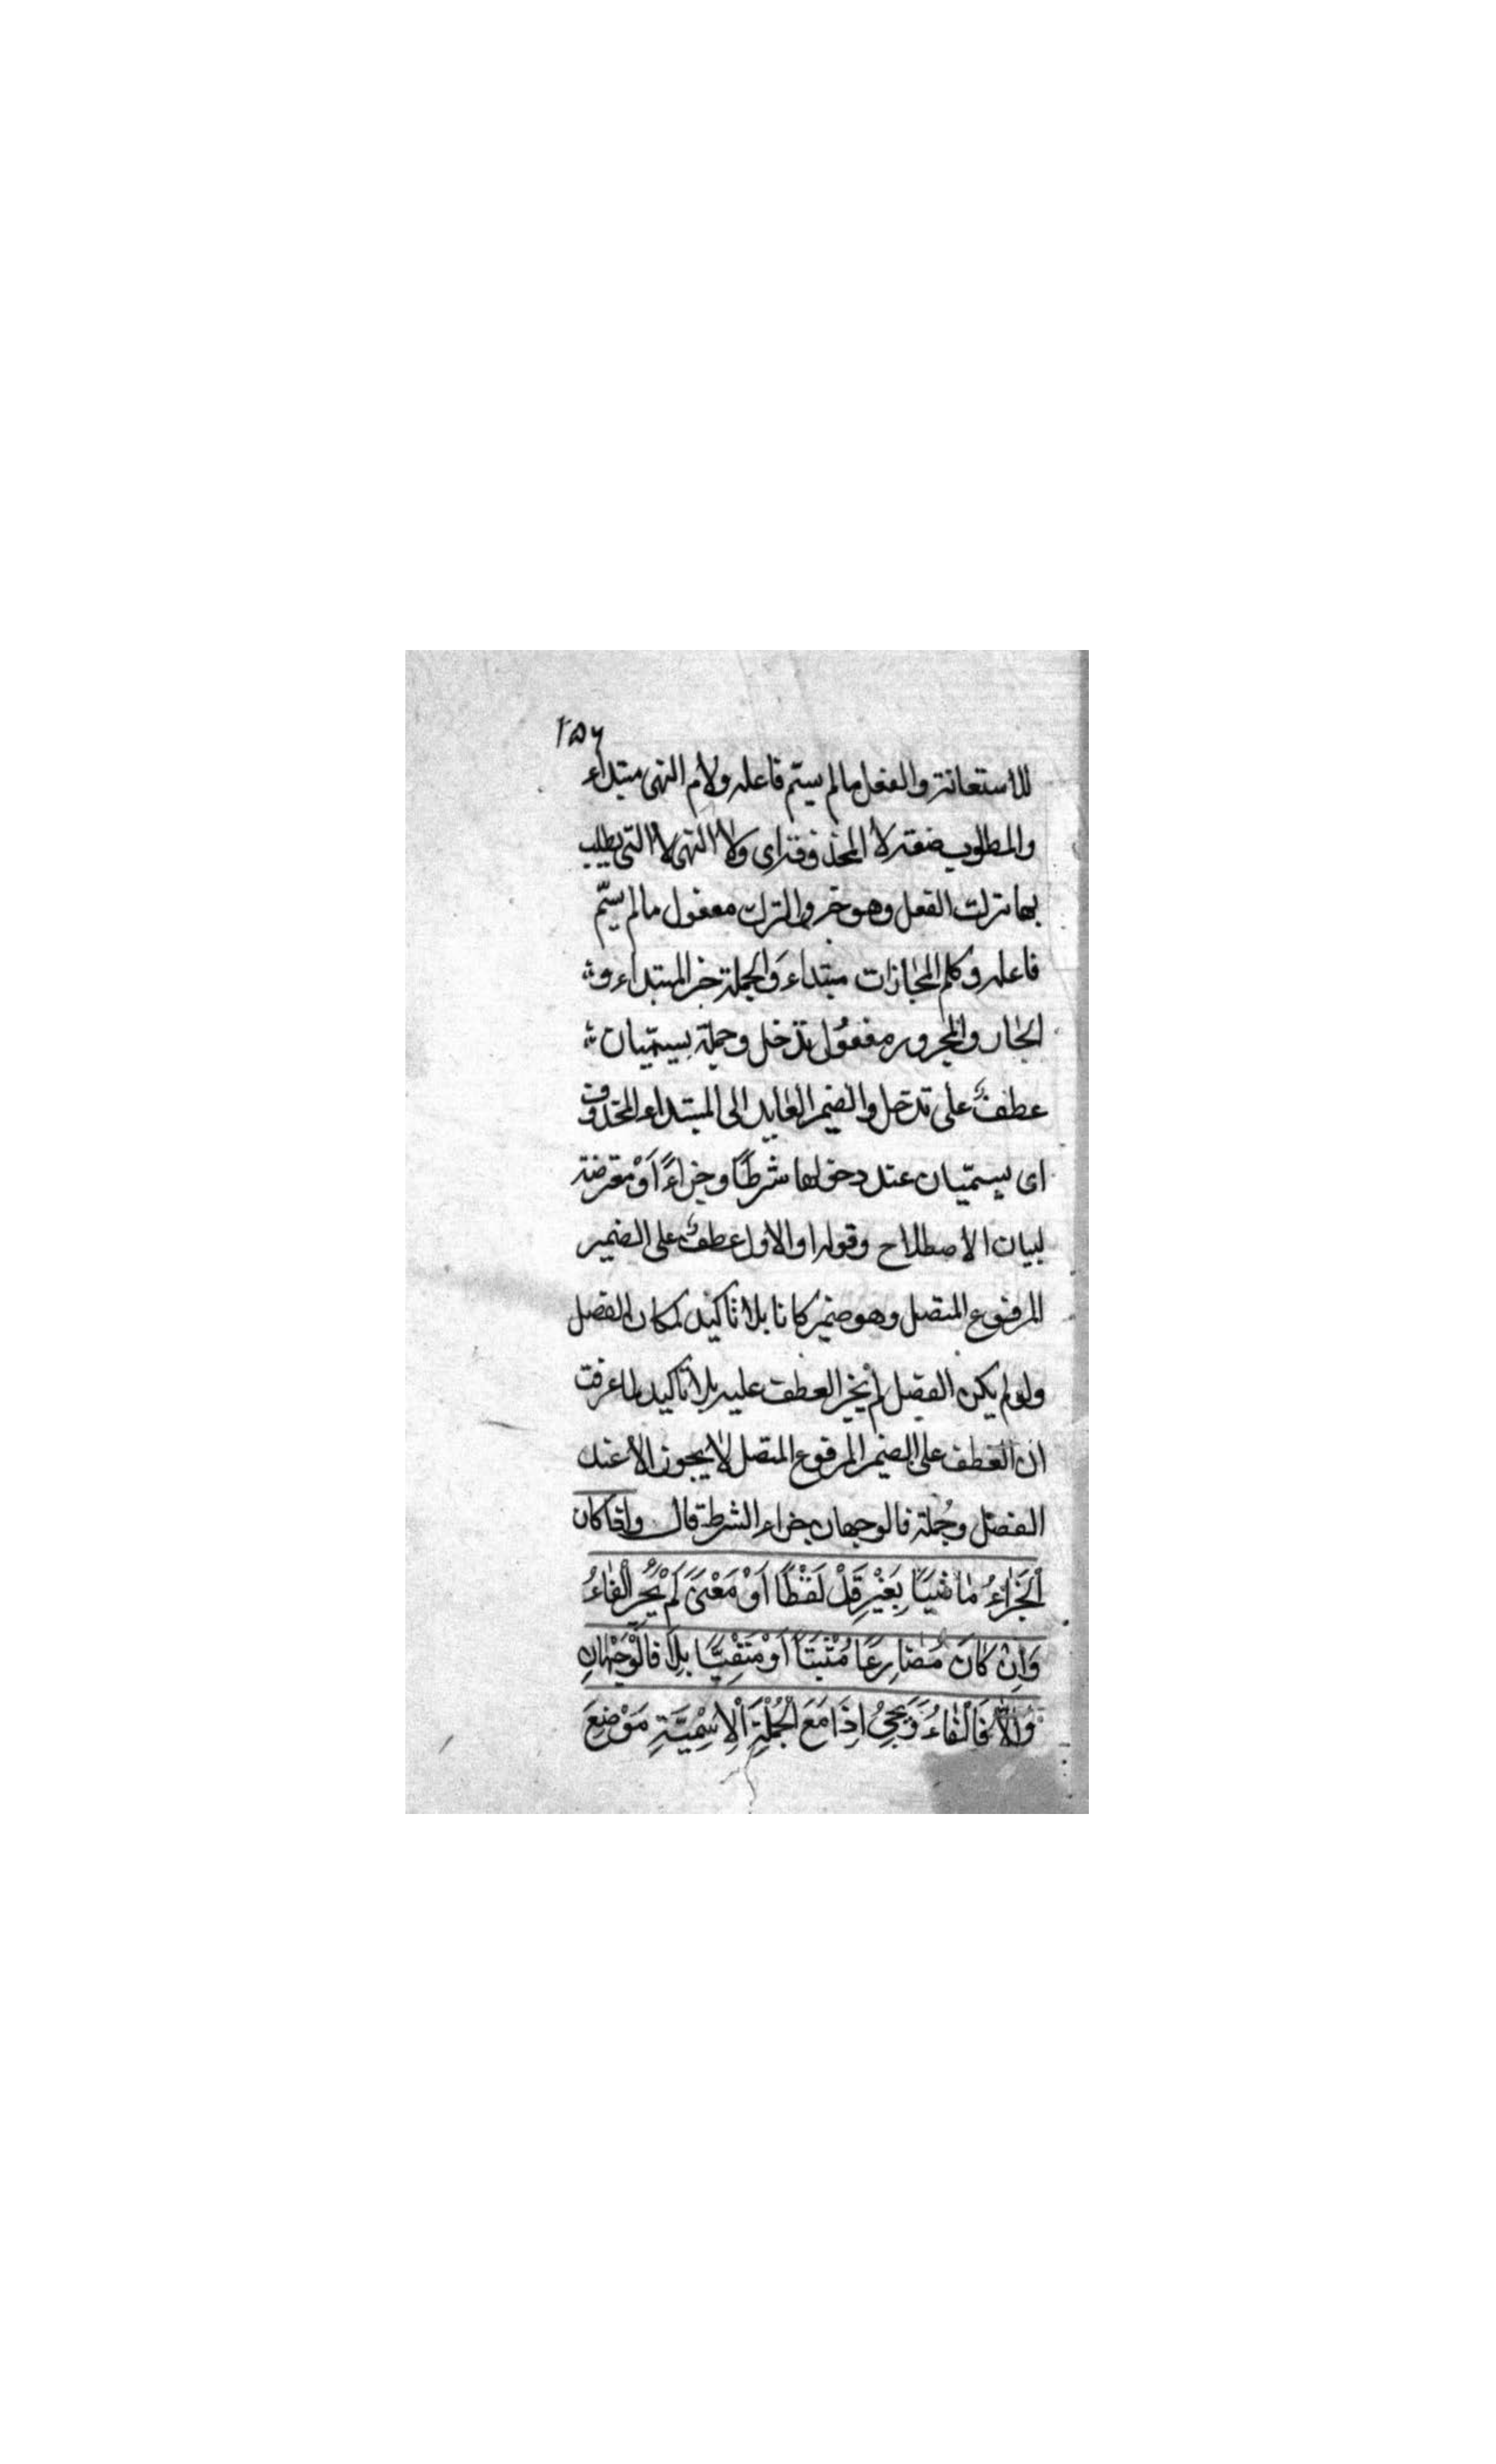 ٢٥٦
للاستعانة والفعل مالم يسمّ فاعله ولام النهى مبتداء
والمطلوب صفة لا المحذوفة اى ولا النهى لا التى يطلب
بها ترك الفعل وهو خبر والترك مفعول مالم يسمّ
فاعله وكلم المجازات مبتداء والجملة خبر المبتداء و
الجار والمجرور مفعول تدخل وجملة يسمّيان
عطفٌ على تدخل والضمير العايد الى المبتداء المحذوف
اى يسمّيان عند دخولها شرطًا وجزاءً اَوْ معترضة
لبيان الاصطلاح وقوله او الاول عطفٌ على الضمير
المرفوع المتصل وهو ضمير كانا بلا تاكيد لمكان الفصل
ولو لم يكن الفصل لم يجز العطف عليه بلا تاكيد لما عرفت
ان العطف على الضمير المرفوع المتصل لا يجوز الا عند
الفصل وجُملة فالوجهان جزاء الشرط قال واذا كان
اَلْجَزَاءُ مَاضِيًا بِغَيْرِ قَدْ لَفْظًا اَوْ مَعْنًى لَمْ يَجُزِ الْفَاءُ
وَاِنْ كَانَ مُضَارِعًا مُثْبَتًا اَوْ مَنْفِيًّا بِلَا فَالْوَجْهَانِ
وَاِلَّا فَالْفَاءُ وَيَجِىُ اِذَا مَعَ الْجُمْلَةِ الْاِسْمِيَّةِ مَوْضِعَ